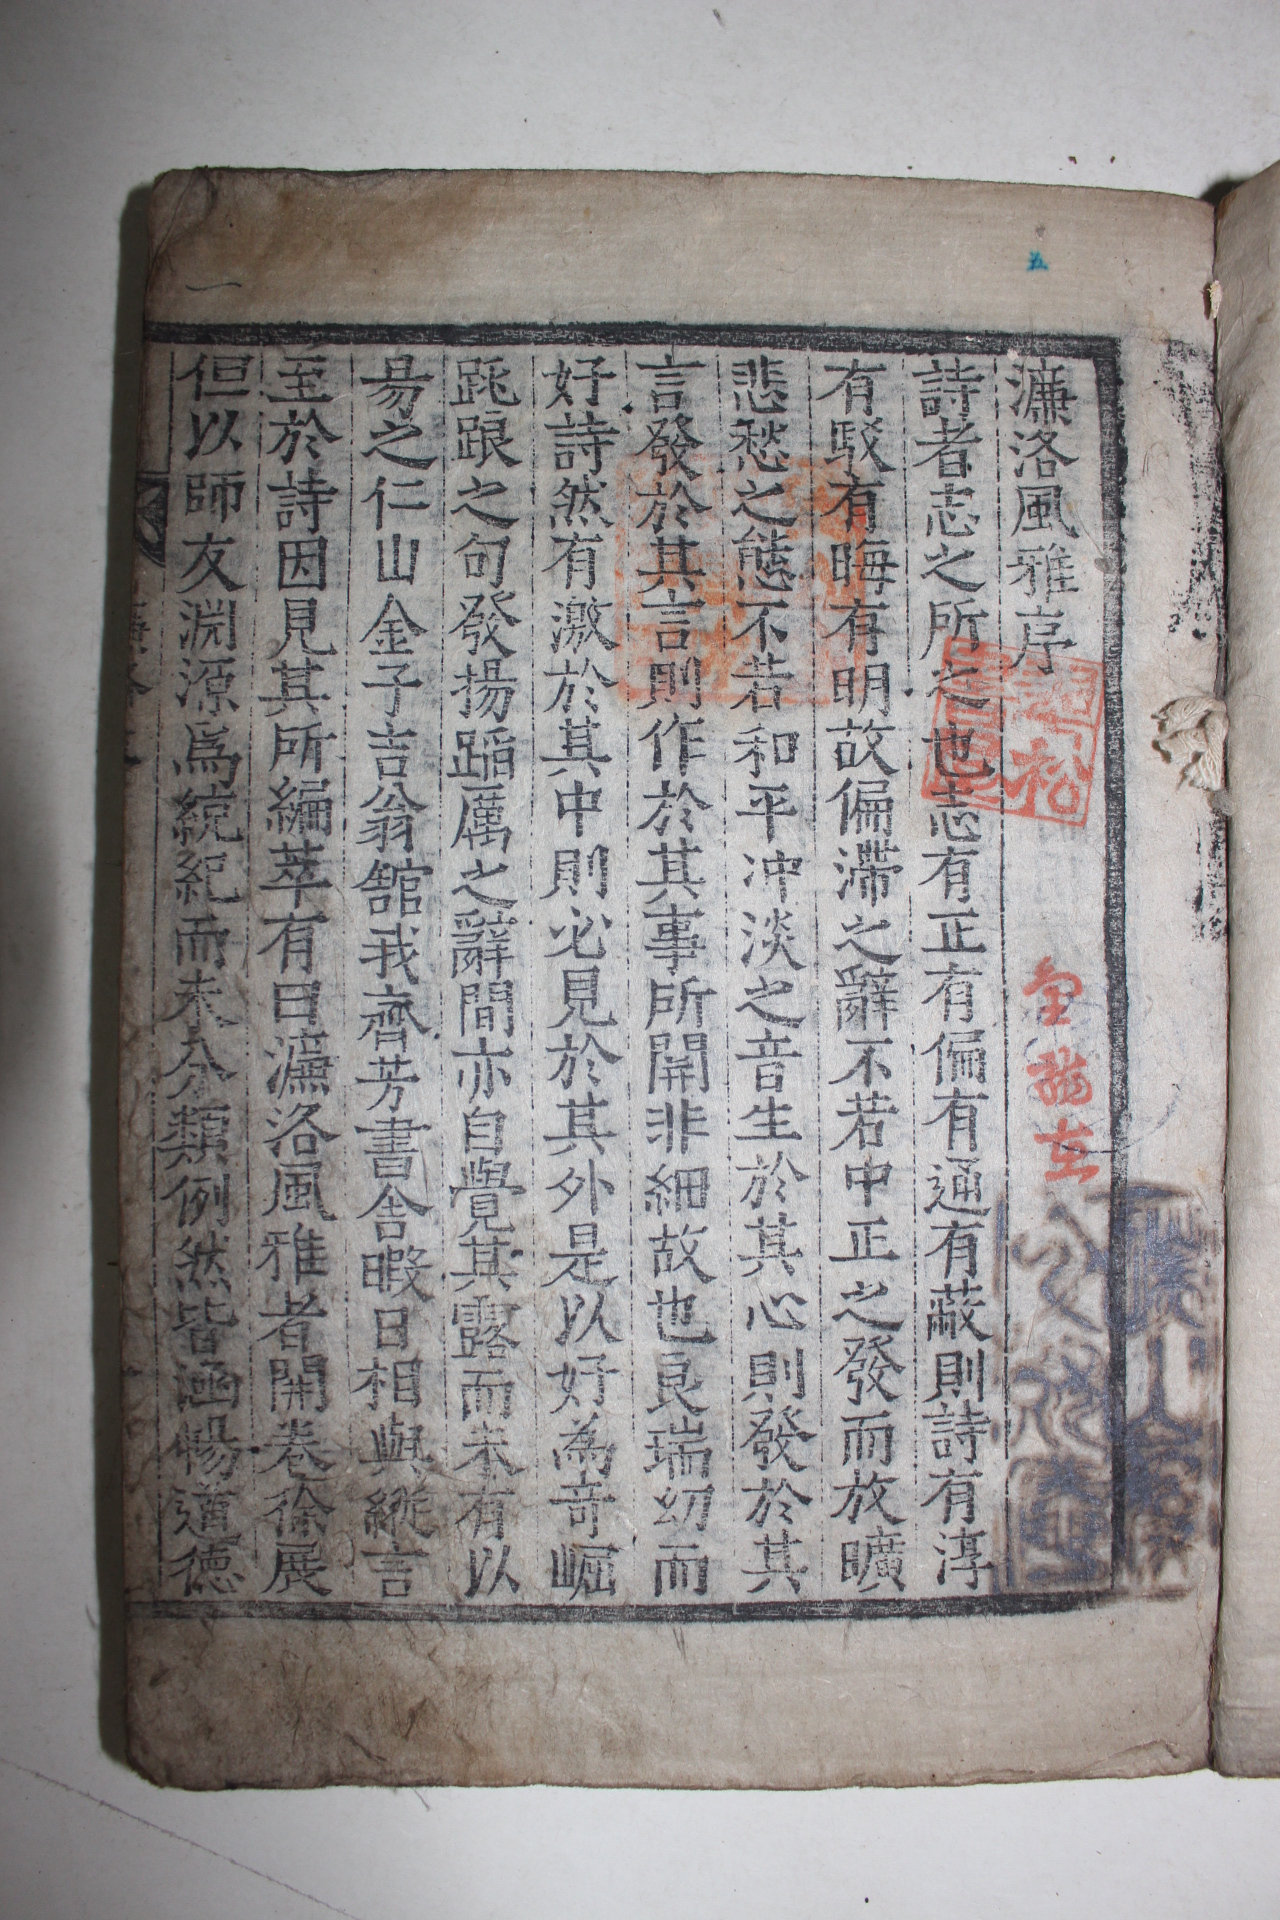 五
一
濂洛風雅序
詩者志之所之也志有正有偏有通有蔽則詩有淳
有駁有晦有明故偏滯之辭不若中正之發而放曠
悲愁之態不若和平冲淡之音生於其心則發於其
言發於其言則作於其事所関非細故也良瑞幼而
好詩然有激於其中則必見於其外是以好為竒崛
跳踉之句發揚蹈厲之辭間亦自覺其露而未有以
昜之仁山金子吉翁舘我齊芳書舎暇日相與縱言
至於詩因見其所編萃有曰濂洛風雅者開卷徐展
但以師友淵源爲統紀而未分類例然皆涵暢道德